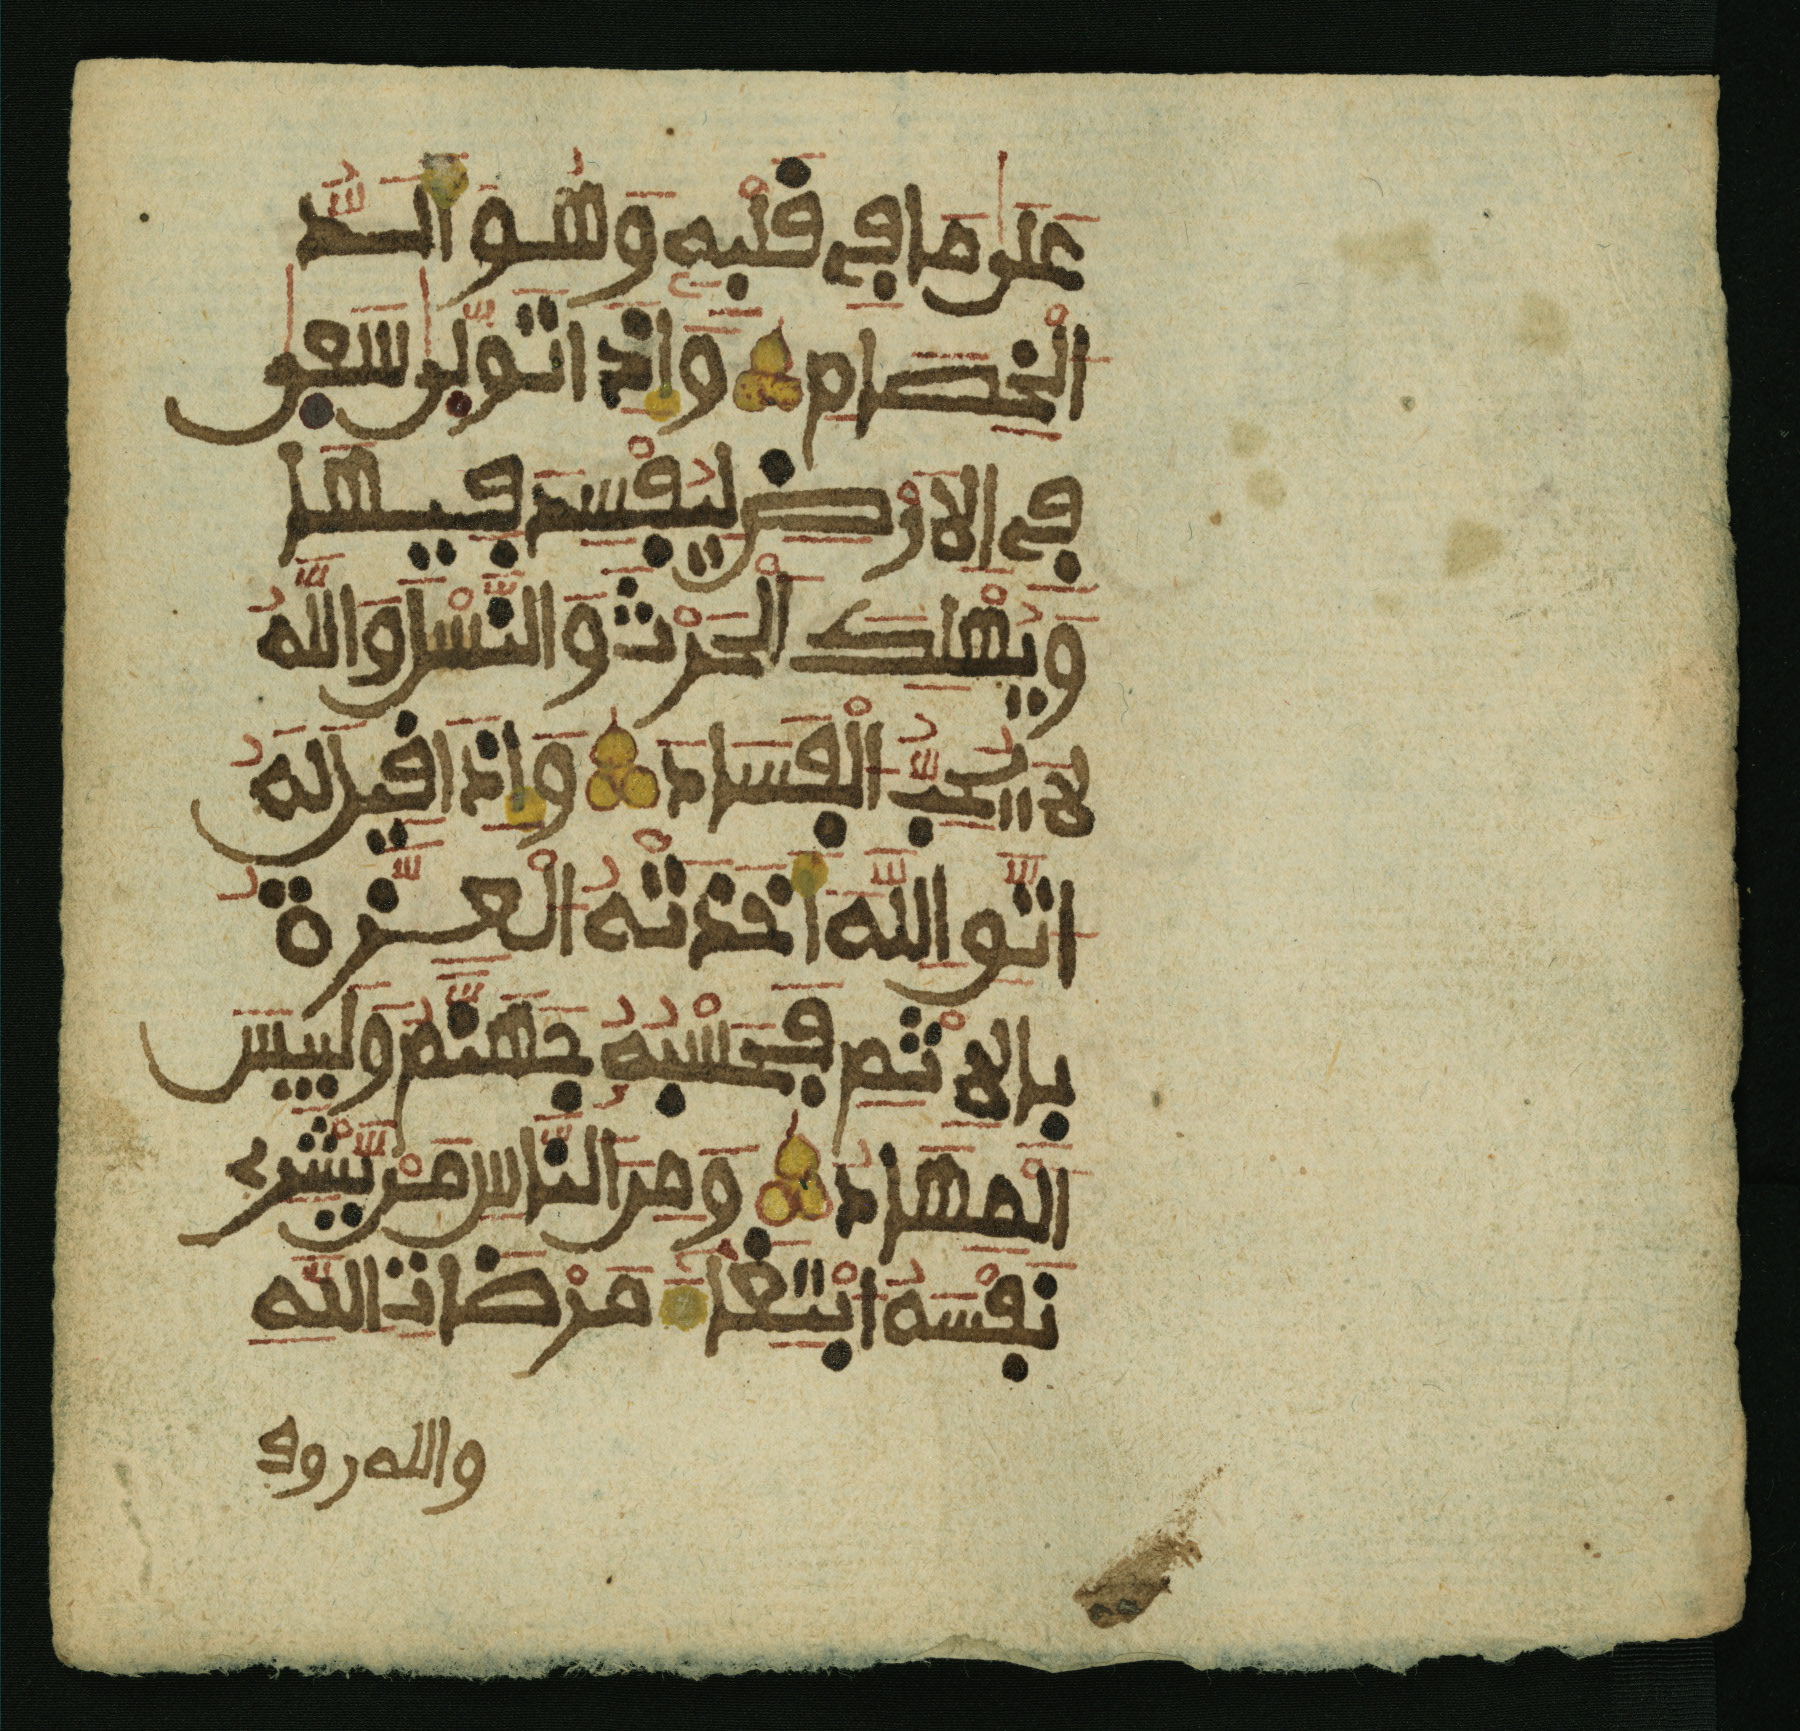 عَلَىٰ مَا فِي قَلْبِهِ وَهُوَ أَلَدُّ
الْخِصَامِ وَإِذَا تَوَلَّىٰ سَعَىٰ
فِي الْأَرْضِ لِيُفْسِدَ فِيهَا
وَيُهْلِكَ الْحَرْثَ وَالنَّسْلَ وَاللَّهُ
لَا يُحِبُّ الْفَسَادَ وَإِذَا قِيلَ لَهُ
اتَّقِ اللَّهَ أَخَذَتْهُ الْعِزَّةُ
بِالْإِثْمِ فَحَسْبُهُ جَهَنَّمُ وَلَبِيسَ
الْمِهَادُ وَمِنَ النَّاسِ مَنْ يَّشْرِي
نَفْسَهُ ابْتِغَاءَ مَرْضَاتِ اللَّهِ
والله روف